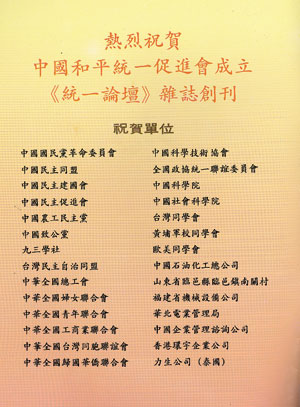 熱烈祝賀
中國和平統一促進會成立
《統一論壇》雜誌創刊
祝賀單位
中國國民黨革命委員會
中國民主同盟
中國民主建國會
中國民主促進會
中國農工民主黨
中國致公黨
九三學社
台灣民主自治同盟
中華全國總工會
中華全國婦女聯合會
中華全國青年聯合會
中華全國工商業聯合會
中華全國台灣同胞聯誼會
中華全國歸國華僑聯合會
中國科學技術協會
全國政協統一聯誼委員會
中國科學院
中國社會科學院
台灣同學會
黃埔軍校同學會
歐美同學會
中國石油化工總公司
山東省臨邑縣臨邑鎮南關村
福建省機械設備公司
華北電業管理局
中國企業管理諮詢公司
香港環宇企業公司
力生公司（泰國）